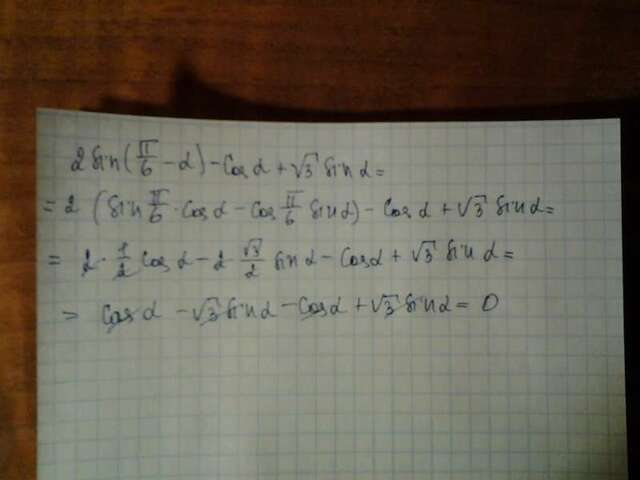 2 sin(π/6 - α) - cos α + √3 sin α =
= 2 (sin π/6 · cos α - cos π/6 sin α) - cos α + √3 sin α =
= 2 · 1/2 cos α - 2 √3/2 sin α - cos α + √3 sin α =
= cos α - √3 sin α - cos α + √3 sin α = 0